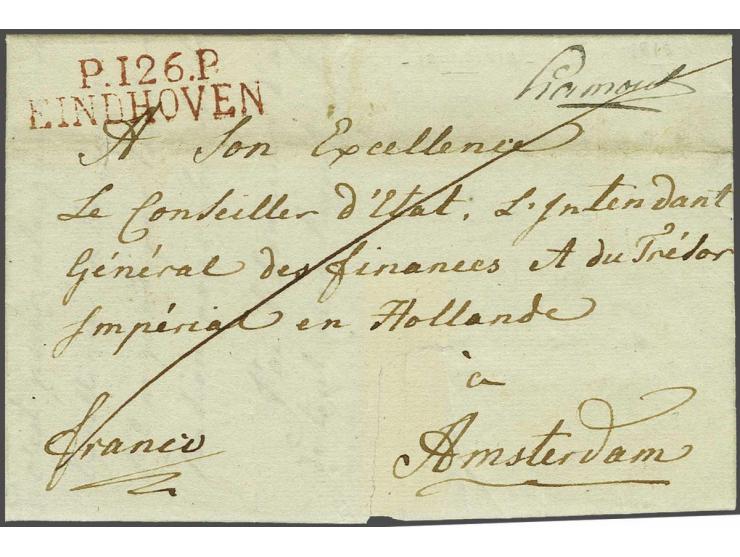 P.126.P.
EINDHOVEN
A Son Excellence
Le Conseiller d'Etat, L'Intendant
Général des finances et du Trésor
Impérial en Hollande
à
franco
Amsterdam